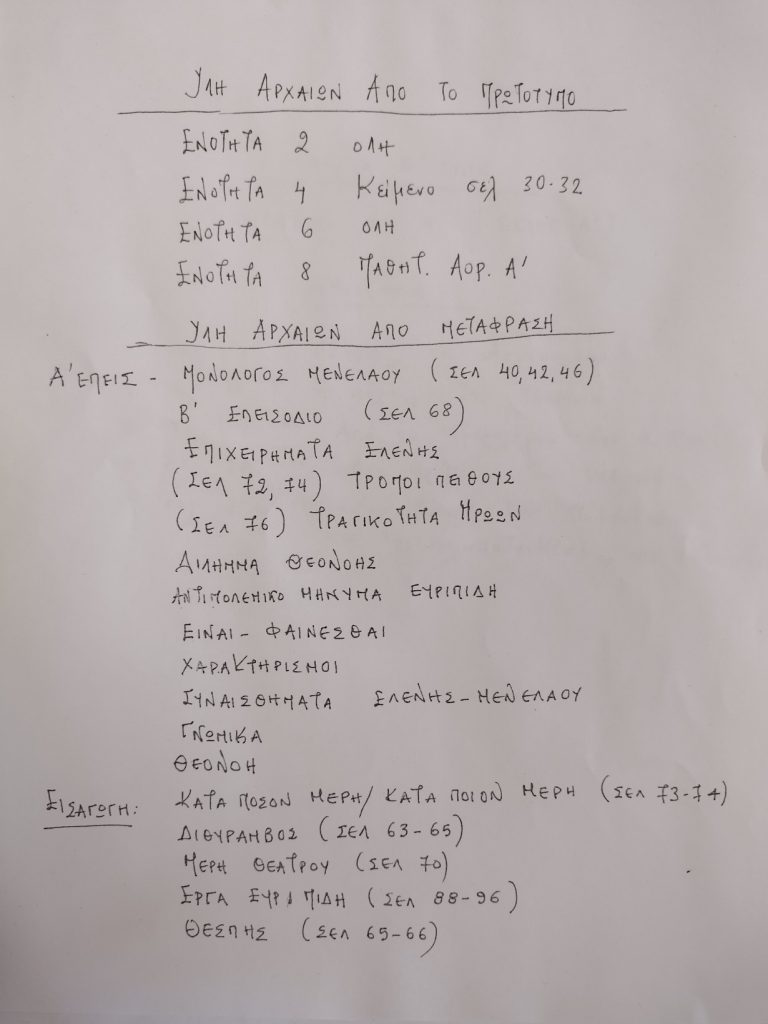 ΥΛΗ ΑΡΧΑΙΩΝ ΑΠΟ ΤΟ ΠΡΩΤΟΤΥΠΟ
ΕΝΟΤΗΤΑ 2 ΟΛΗ
ΕΝΟΤΗΤΑ 4 Κείμενο σελ 30-32
ΕΝΟΤΗΤΑ 6 ΟΛΗ
ΕΝΟΤΗΤΑ 8 ΠΑΘΗΤ. ΑΟΡ. Α'
ΥΛΗ ΑΡΧΑΙΩΝ ΑΠΟ ΜΕΤΑΦΡΑΣΗ
Α' ΕΠΕΙΣ - ΜΟΝΟΛΟΓΟΣ ΜΕΝΕΛΑΟΥ (ΣΕΛ 40, 42, 46)
Β' ΕΠΕΙΣΟΔΙΟ (ΣΕΛ 68)
ΕΠΙΧΕΙΡΗΜΑΤΑ ΕΛΕΝΗΣ
(ΣΕΛ 72, 74) ΤΡΟΠΟΙ ΠΕΙΘΟΥΣ
(ΣΕΛ 76) ΤΡΑΓΙΚΟΤΗΤΑ ΗΡΩΩΝ
ΔΙΛΗΜΜΑ ΘΕΟΝΟΗΣ
ΑΝΤΙΠΟΛΕΜΙΚΟ ΜΗΝΥΜΑ ΕΥΡΙΠΙΔΗ
ΕΙΝΑΙ - ΦΑΙΝΕΣΘΑΙ
ΧΑΡΑΚΤΗΡΙΣΜΟΙ
ΣΥΝΑΙΣΘΗΜΑΤΑ ΕΛΕΝΗΣ - ΜΕΝΕΛΑΟΥ
ΓΝΩΜΙΚΑ
ΘΕΟΝΟΗ
ΕΙΣΑΓΩΓΗ: ΚΑΤΑ ΠΟΣΟΝ ΜΕΡΗ/ ΚΑΤΑ ΠΟΙΟΝ ΜΕΡΗ (ΣΕΛ 73-74)
ΔΙΘΥΡΑΜΒΟΣ (ΣΕΛ 63-65)
ΜΕΡΗ ΘΕΑΤΡΟΥ (ΣΕΛ 70)
ΕΡΓΑ ΕΥΡΙΠΙΔΗ (ΣΕΛ 88-96)
ΘΕΣΠΗΣ (ΣΕΛ 65-66)